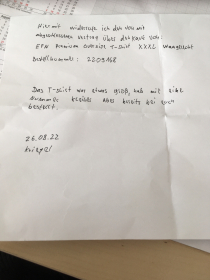 Hiermit widerrufe ich den von mir
abgeschlossenen Vertrag über den Kauf von:
EFN Premium Oversize T-Shirt XXXL ungewascht
Bestellnummer: 2209168
Das T-Shirt war etwas groß, hab mir eine
Nummer kleiner aber bereits bei euch
bestellt.
26.08.22